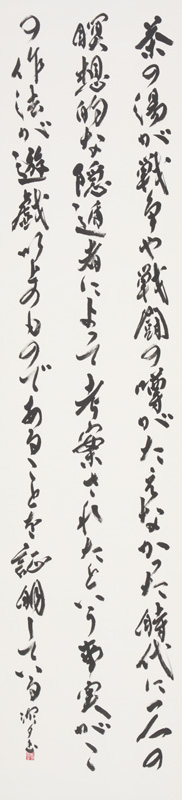 茶の湯が戦争や戦闘の噂がたえなかった時代に一人の
瞑想的な隠遁者によって考案されたという事実がこ
の作法が遊戯以上のものであることを証明している